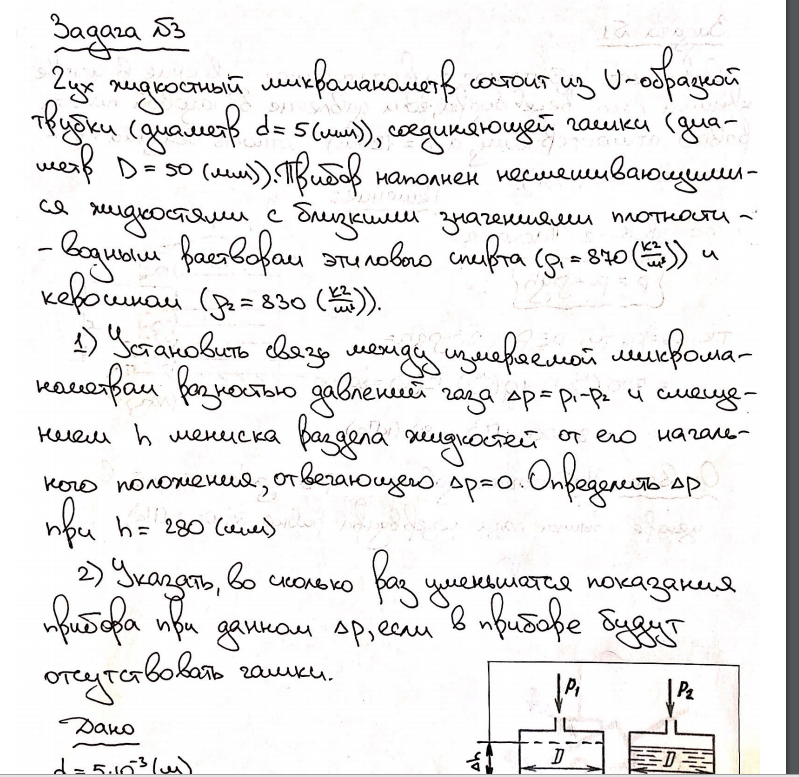 Задача №3
2ух жидкостный микроманометр состоит из U-образной
трубки (диаметр d = 5 (мм)), соединяющей чашки (диа-
метр D = 50 (мм)). Прибор наполнен несмешивающими-
ся жидкостями с близкими значениями плотности -
- водным раствором этилового спирта (ρ₁ = 870 (кг/м³)) и
керосином (ρ₂ = 830 (кг/м³)).
1) Установить связь между измеряемой микрома-
нометром разностью давлений газа Δp = p₁-p₂ и смеще-
нием h мениска раздела жидкостей от его началь-
ного положения, отвечающего Δp = 0. Определить Δp
при h = 280 (мм)
2) Указать, во сколько раз уменьшатся показания
прибора при данном Δp, если в приборе будут
отсутствовать чашки.
Дано
d = 5·10⁻³ (м)
p₁ p₂
D D